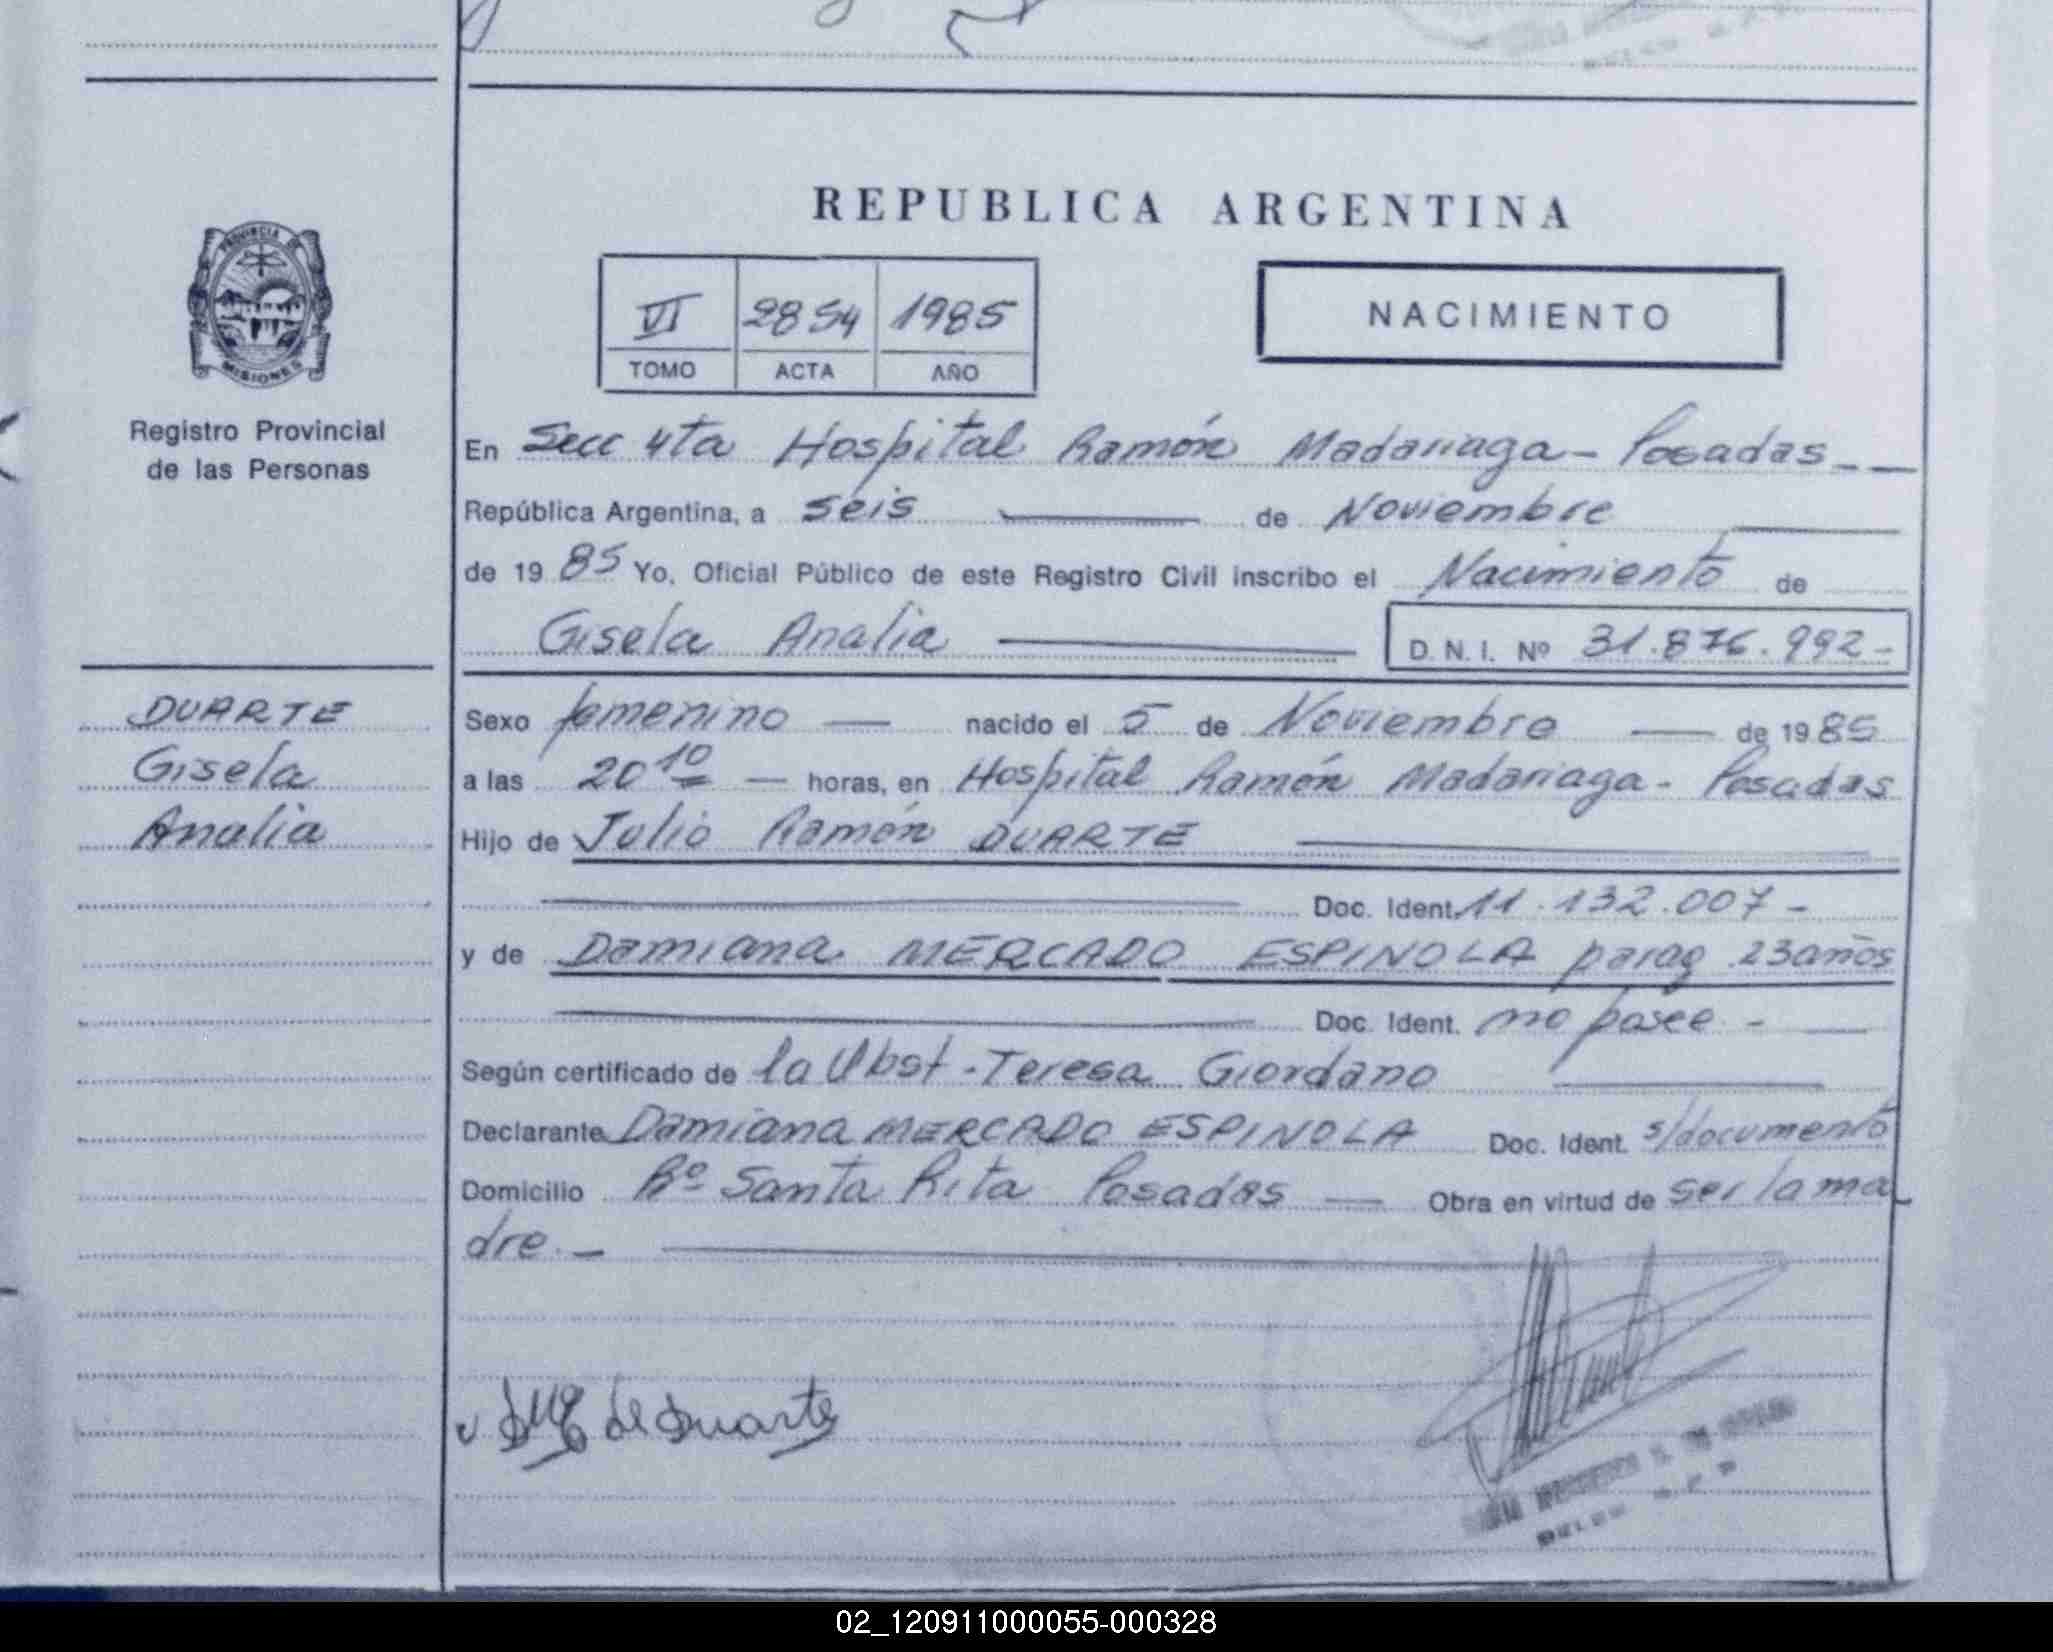 REPUBLICA ARGENTINA
PROVINCIA DE
MISIONES
Registro Provincial
de las Personas
VI 2854 1985
TOMO ACTA AÑO
NACIMIENTO
En Secc 4ta Hospital Ramón Madariaga - Posadas - —
República Argentina, a seis — de Noviembre —
de 19 85 Yo, Oficial Público de este Registro Civil inscribo el Nacimiento de
Gisela Analia — D.N.I. Nº 31.876.992-
DUARTE
Gisela
Analia
Sexo femenino — nacido el 5 de Noviembre — de 1985
a las 20 10 — horas, en Hospital Ramón Madariaga - Posadas
Hijo de Julio Ramón DUARTE —
— Doc. Ident. 11.132.007 -
y de Damiana MERCADO ESPINOLA parag 23años
— Doc. Ident. no posee - —
Según certificado de la Obst - Teresa Giordano —
Declarante Damiana MERCADO ESPINOLA Doc. Ident. s/documento
Domicilio Bº Santa Rita Posadas — Obra en virtud de ser la ma
dre. —
de Duarte
02_120911000055-000328